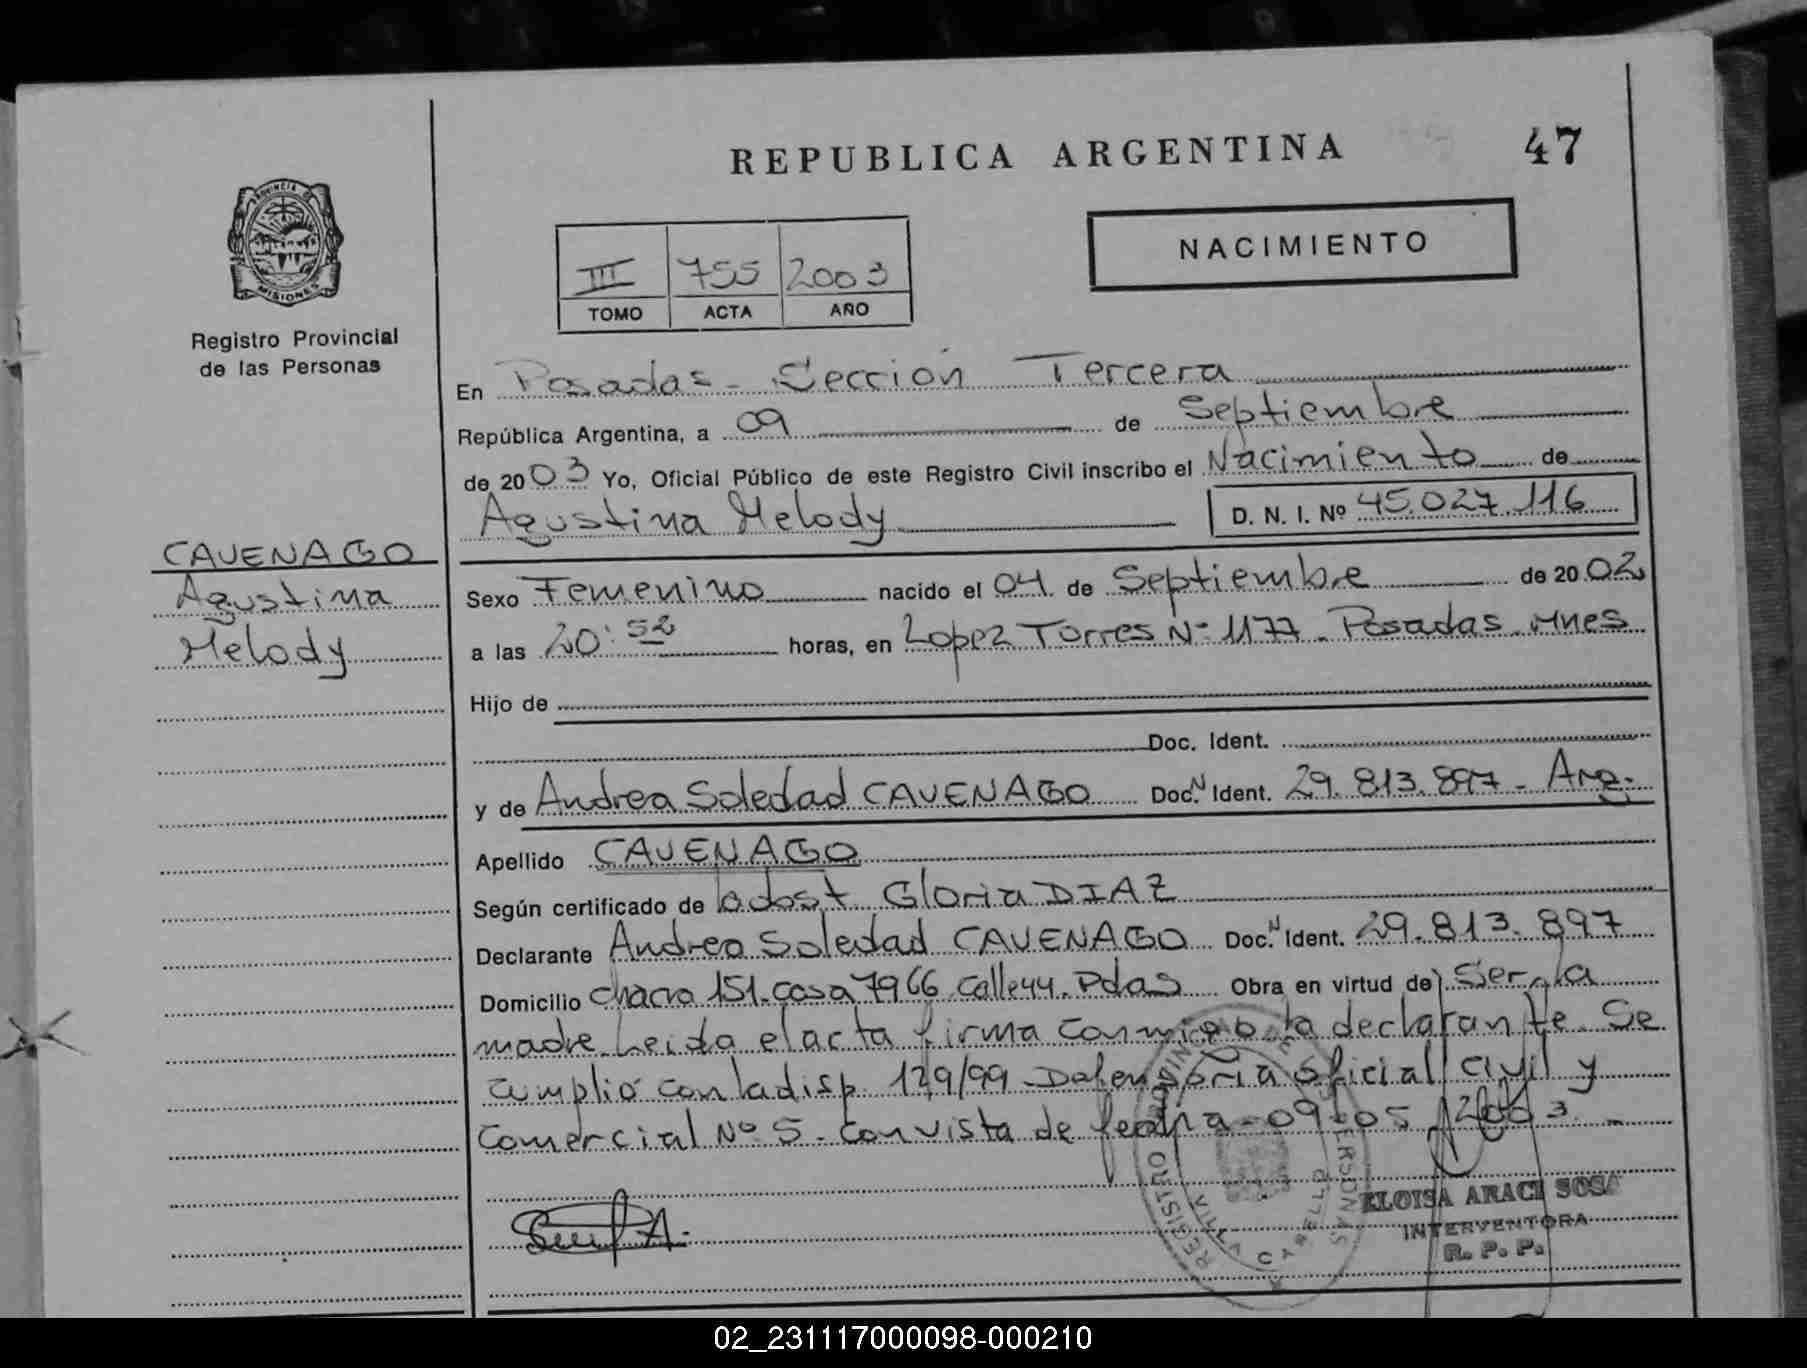 REPUBLICA ARGENTINA
47
PROVINCIA DE
MISIONES
Registro Provincial
de las Personas
III 755 2003
TOMO ACTA AÑO
NACIMIENTO
En Posadas - Sección Tercera
República Argentina, a 09 de Septiembre
de 2003 Yo, Oficial Público de este Registro Civil inscribo el Nacimiento de
Agustina Melody D. N. I. Nº 45.027.116
CAVENAGO
Agustina
Melody
Sexo Femenino nacido el 04 de Septiembre de 2002
a las 20:52 horas, en Lopez Torres Nº 1177 - Posadas - Mnes
Hijo de
Doc. Ident.
y de Andrea Soledad CAVENAGO Doc.N Ident. 29.813.897 - Arg.
Apellido CAVENAGO
Según certificado de obst. Gloria DIAZ
Declarante Andrea Soledad CAVENAGO Doc.N Ident. 29.813.897
Domicilio chacra 151. casa 7966 Calle 44. Pdas Obra en virtud de Ser la
madre. Leida el acta firma conmigo la declarante. Se
cumplió con la disp. 129/99 - Defensoria oficial civil y
Comercial Nº 5. con vista de fecha - 09-05-2003. -
ELOISA ARACI SOSA
INTERVENTORA
R. P. P.
02_231117000098-000210